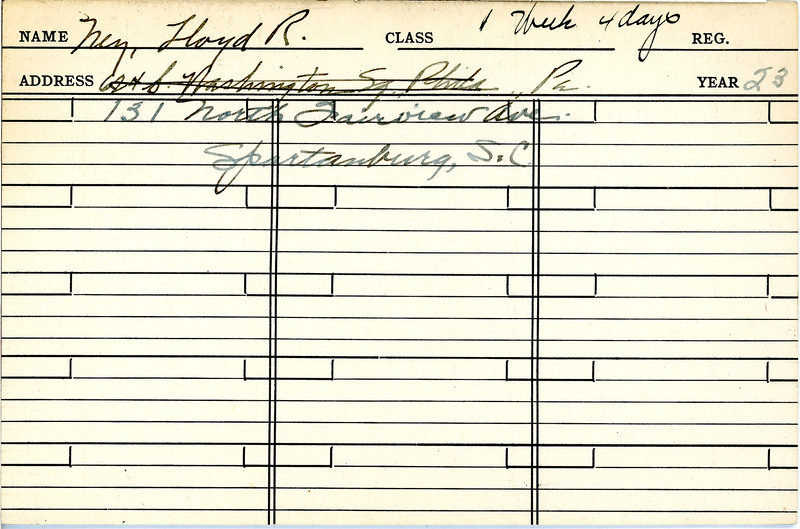 NAME Ney, Lloyd R. CLASS 1 Week 4 days REG.
ADDRESS 6th & Washington Sq. Phila., Pa. YEAR 23
131 North Fairview Ave.
Spartanburg, S.C.